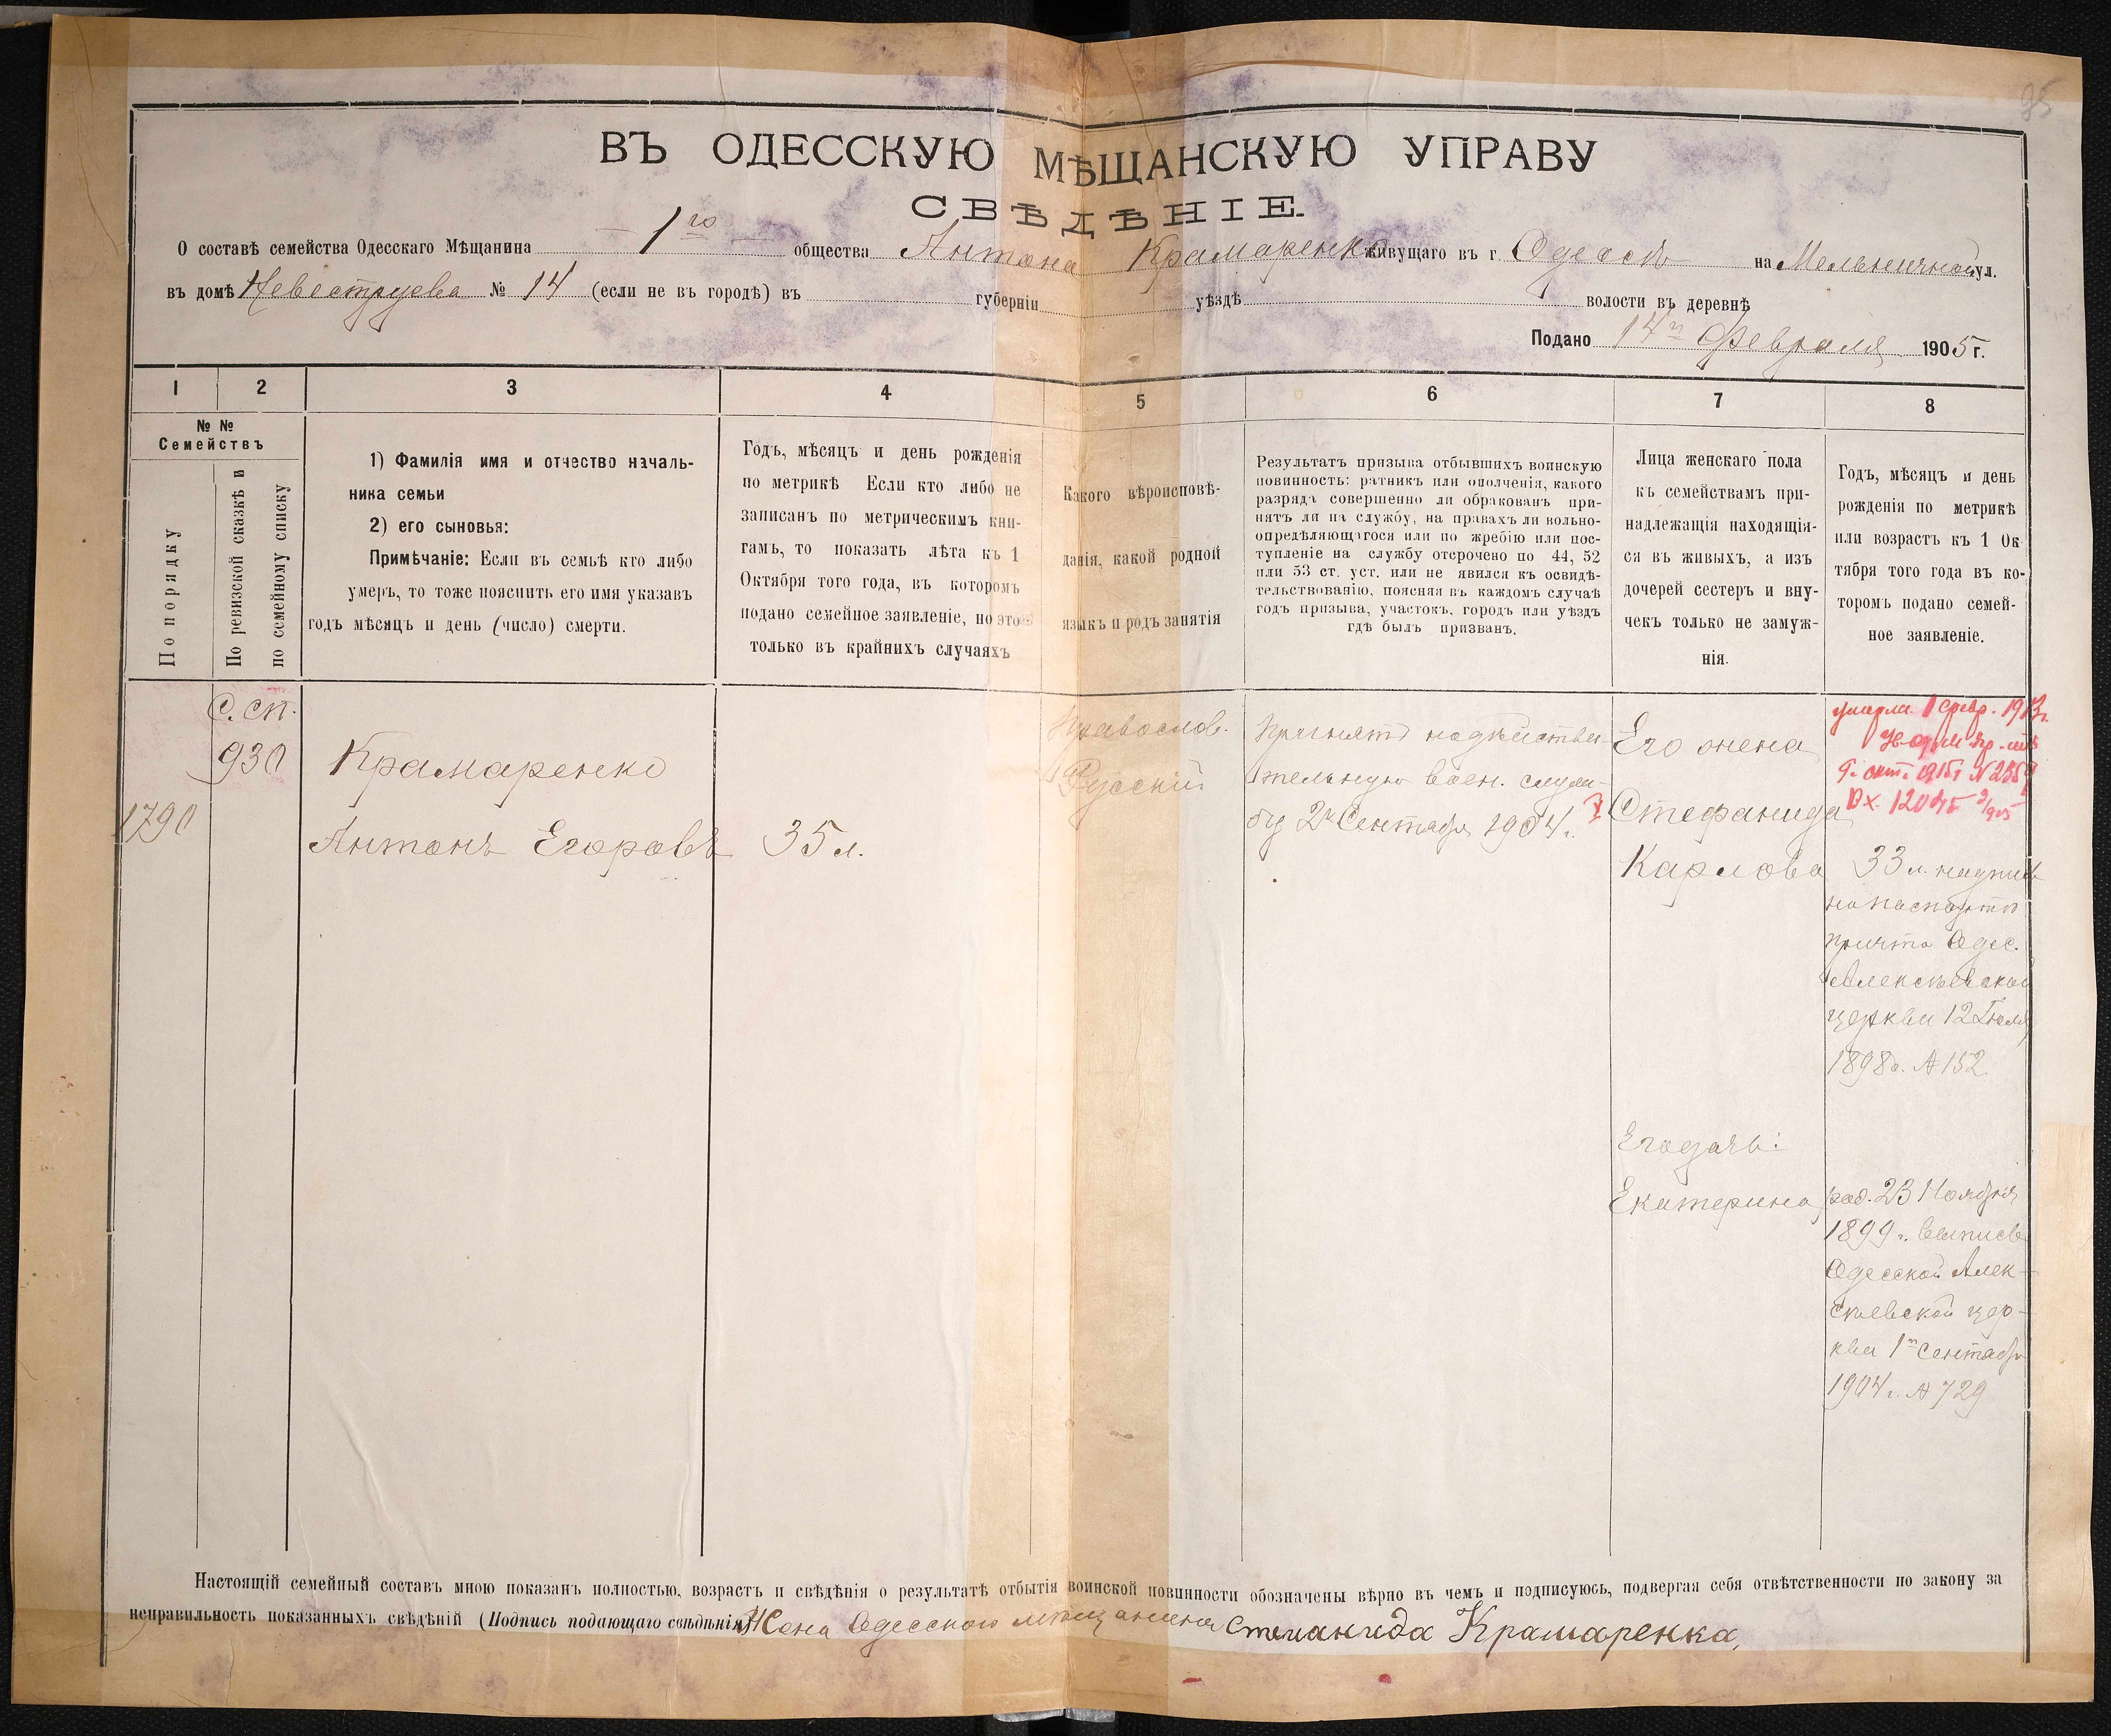 95
ВЪ ОДЕССКУЮ МѢЩАНСКУЮ УПРАВУ
СВѢДѢНІЕ.
О составѣ семейства Одесскаго Мѣщанина 1го общества Антона Крамаренко живущаго въ г. Одессѣ на Мельничной ул.
въ домѣ Невеструева № 14 (если не въ городѣ) въ губерніи уѣздѣ волости въ деревнѣ
Подано 14го Февраля 1905 г.
1 2 3 4 5 6 7 8
№ №
Семействъ
По порядку
По ревизской сказкѣ и
по семейному списку
1) Фамилія имя и отчество началь-
ника семьи
2) его сыновья:
Примѣчаніе: Если въ семьѣ кто либо
умеръ, то тоже пояснить его имя указавъ
годъ мѣсяцъ и день (число) смерти.
Годъ, мѣсяцъ и день рожденія
по метрикѣ Если кто либо не
записанъ по метрическимъ кни-
гамъ, то показать лѣта къ 1
Октября того года, въ которомъ
подано семейное заявленіе, но это
только въ крайнихъ случаяхъ
Какого вѣроисповѣ-
данія, какой родной
языкъ и родъ занятія
Результатъ призыва отбывшихъ воинскую
повинность: ратникъ или ополченія, какого
разряда совершенно ли обракованъ при-
нятъ ли на службу, на правахъ ли вольно-
опредѣляющагося или по жребію или пос-
тупленіе на службу отсрочено по 44, 52
или 53 ст. уст. или не явился къ освидѣ-
тельствованію, поясняя въ каждомъ случаѣ
годъ призыва, участокъ, городъ или уѣздъ
гдѣ былъ призванъ.
Лица женскаго пола
къ семействамъ при-
надлежащія находящія-
ся въ живыхъ, а изъ
дочерей сестеръ и вну-
чекъ только не замуж-
нія.
Годъ, мѣсяцъ и день
рожденія по метрикѣ
или возрастъ къ 1 Ок-
тября того года въ ко-
торомъ подано семей-
ное заявленіе.
1790
С. сп.
930
Крамаренко
Антонъ Егоровъ
35 л.
Православ.
Русскій
Принятъ на дѣйстви-
тельную воен. служ-
бу 24 Сентября 1904 г.
Его жена
Стефанида
Карлова
умерла 1 февр. 1913 г.
9 окт. 1915 г. №
Вх. 12045
33 л. надпись
на паспортѣ
причта Одес.
Алексѣевской
церкви 12 Іюля
1898 г. № 152
Его дочь:
Екатерина
род. 23 Ноября
1899 г. выпись
Одесской Алек-
сѣевской цер-
кви 1го Сентября
1904 г. № 729
Настоящій семейный составъ мною показанъ полностью, возрастъ и свѣдѣнія о результатѣ отбытія воинской повинности обозначены вѣрно въ чемъ и подписуюсь, подвергая себя отвѣтственности по закону за
неправильность показанныхъ свѣдѣній (Подпись подающаго свѣдѣнія) Жена Одесскаго мѣщанина Стеианида Крамаренка,